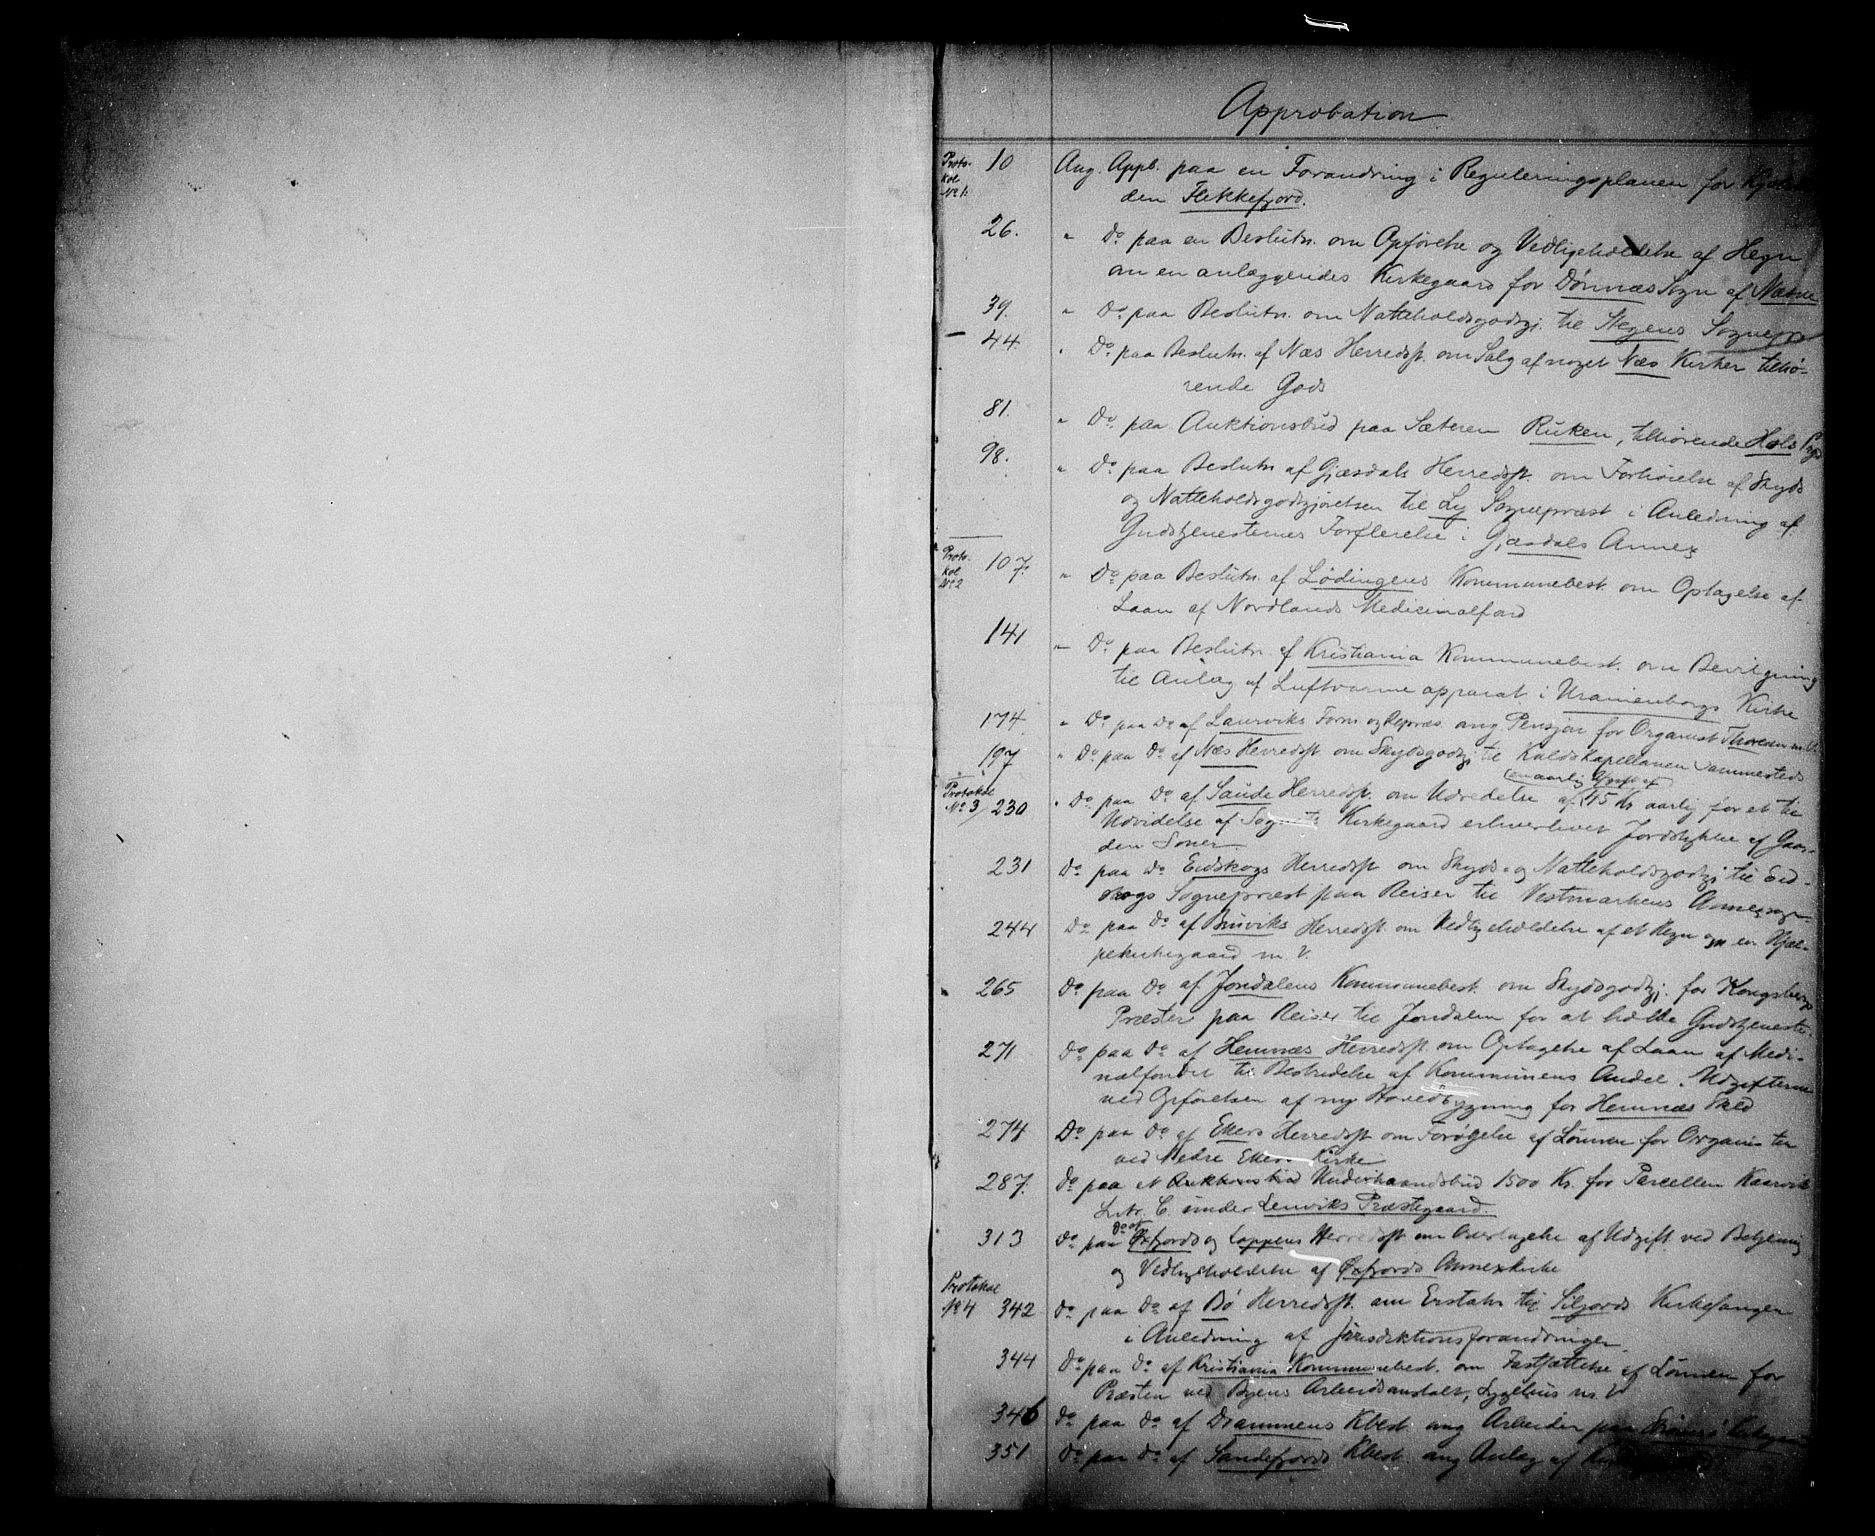 Approbation
Proto-
kol
No 1.
10 Ang. Appb. paa en Forandring i Reguleringsplanen for
den Flekkefjord.
26. " Do paa en Beslutn. om Opførelse og Vedligeholdelse af Hegn
om en anlæggendes Kirkegaard for Dönnæs Sogn af Næsne
39. " Do paa Beslutn. om Natteholdsgodtgj. til Stegens Sognepr
44. " Do paa Beslutn. af Næs Herredsst. om Salg af noget Næs Kirker tilhø-
rende Gods
81. " Do. paa Auktionsbud paa Sæteren Ruken, tilhørende Hols Pgd
98. " Do paa Beslutn af Gjæsdals Herredsst. om Forhøielse af Skyds
og Natteholdsgodtgjørelsen til Ly Sognepræst i Anledning af
Gudstjenesternes Forflerelse i Gjæsdals Annex
Proto-
kol
No 2
107. " Do paa Beslutn. af Lødingens Kommunebest. om Optagelse af
Laan af Nordlands Medicinalfond
141 " Do paa Beslutn. af Kristiania Kommunebest. om Bevilgning
til Anlæg af Luftvarmeapparat i Uranienborgs Kirke
174. " Do paa Do af Laurviks Form og Repræs. ang Pensjon for Organist
197 " Do paa Do af Næs Herredsst om Skydsgodtgj til Kaldskapellanen sammesteds
Protokol
No 3/ 230 " Do paa Do af Saude Herredsst. om Udredelse af 45 Kr aarlig for et til
Udvidelse af Sognets Kirkegaard erhvervet Jordstykke af Gaar-
den
231 Do paa Do Eidskogs Herredsst om Skyds- og Natteholdsgodtgj til Eid-
skogs Sognepræst paa Reiser til Vestmarkens Annexsogn
244 Do paa Do af Buviks Herredsst. om Vedligeholdelse af et Hegn om en Hjæl-
pekirkegaard m. V.
265 Do paa Do af Jondalens Kommunebest. om Skydsgodtgj. for Kongsbergs
Præster paa Reiser til Jondalen for at holde Gudstjeneste
271 Do paa Do af Hemnæs Herredsst. om Optagelse af Laan af Medi-
nalfondet til Bestridelse af Kommunens Andel i Udgifterne
ved Opførelsen af ny Hovedbygning for Hemnæs Pkld
274 Do paa Do af Ekers Herredsst om Forøgelse af Lønnen for Organisten
ved Nedre Ekers Kirke
287. Do paa et Auktionsbud Underhaandsbud 1500 Kr. for Parcellen Kaarvik
Litr. C. under Lenviks Præstegaard.
do af
313 Do paa Øxfjords og Loppens Herredsst om Overtagelse af Udgift. ved Betjening
og Vedligeholdelse af Øxfjords Annexkirke
Protokol
No 4 342 Do paa Do af Bø Herredsst. om Erstatn til Siljords Kirkesanger
i Anledning af Jurisdiktionsforandringer
344 Do paa Do af Kristiania Kommunebest. om Fastsættelse af Lønnen for
Præsten ved Byens Arbeidsanstalt, Sygehus m. V
346 Do paa Do af Drammens Kbest. ang Arbeider paa
351 Do paa Do af Sandefjords Kbest. ang Anlæg af